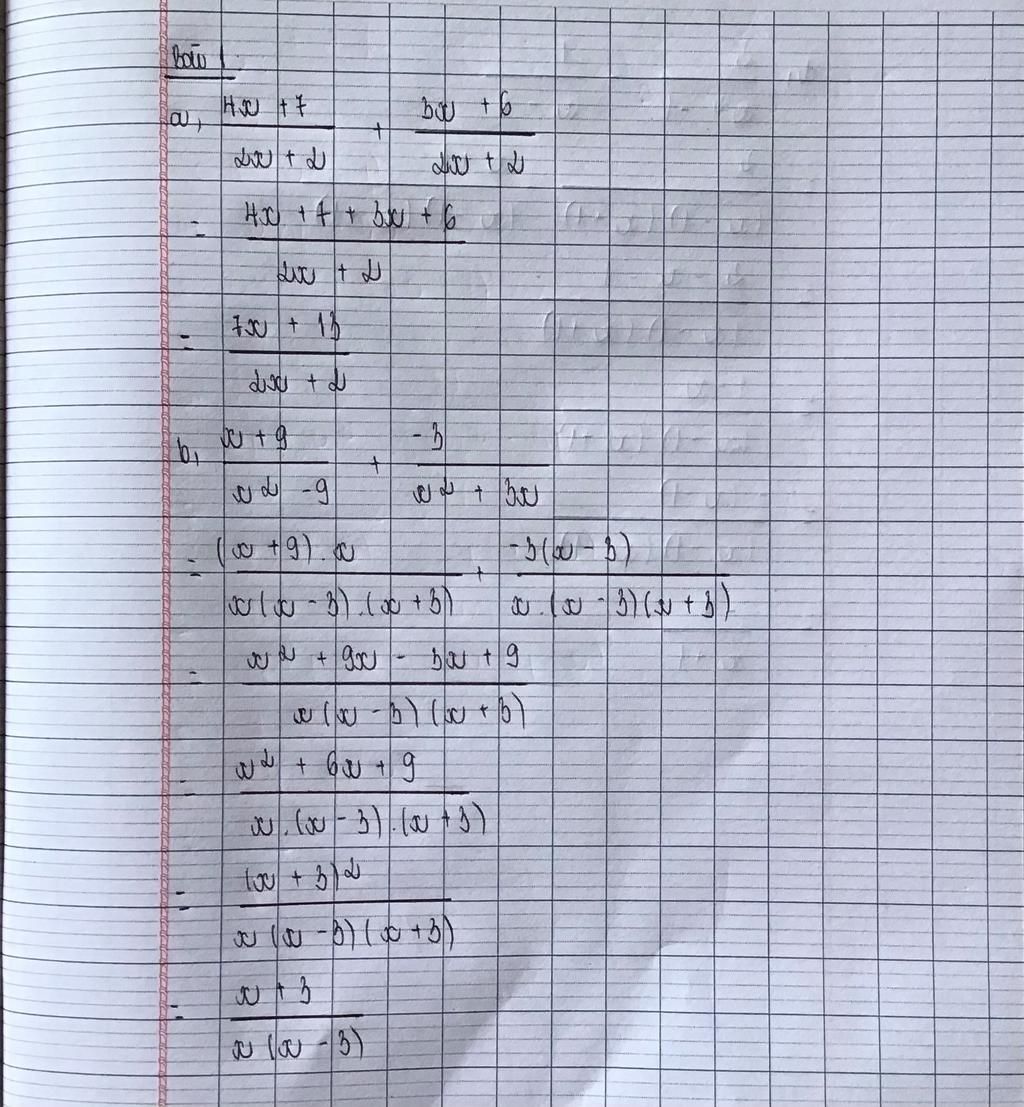 Bài 1
a, (4x + 7)/(2x + 2) + (3x + 6)/(2x + 2)
= (4x + 7 + 3x + 6)/(2x + 2)
= (7x + 13)/(2x + 2)
b, (x + 9)/(x² - 9) + (-3)/(x² + 3x)
= ((x + 9).x)/(x(x - 3).(x + 3)) + (-3(x - 3))/(x.(x - 3)(x + 3))
= (x² + 9x - 3x + 9)/(x(x - 3)(x + 3))
= (x² + 6x + 9)/(x.(x - 3).(x + 3))
= (x + 3)²/(x(x - 3)(x + 3))
= (x + 3)/(x(x - 3))